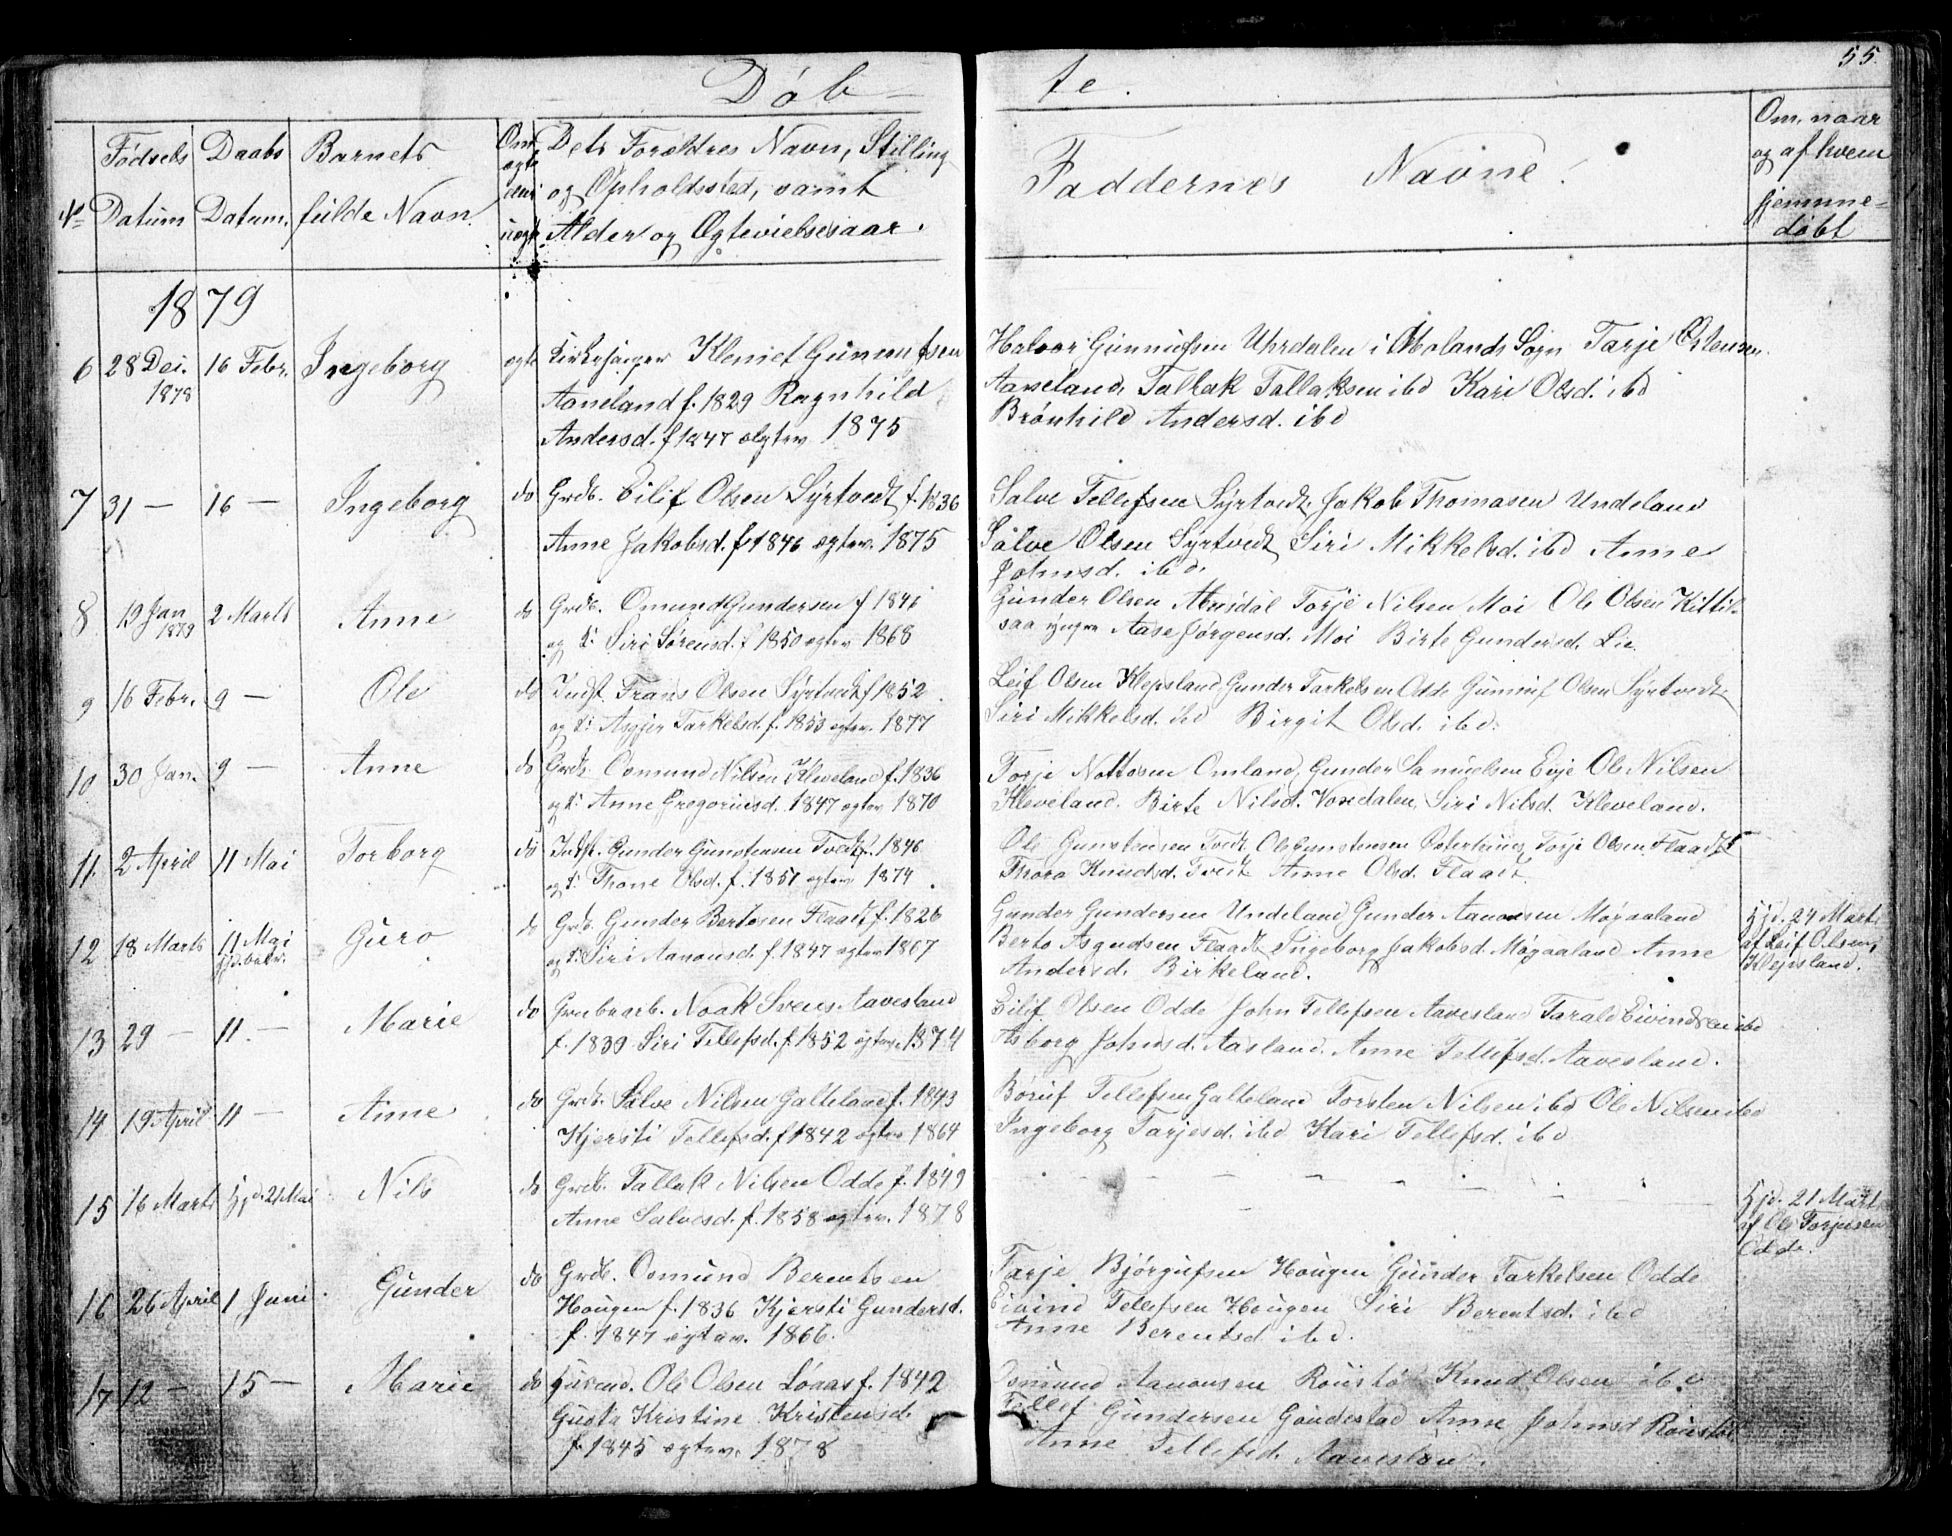 55.
Döb-
te.
No
Födsels Datum
Daabs Datum.
Barnets fulde Navn.
Om ægte eller uægte
Dets Forældres Navn, Stilling
og Opholdssted, samt
Alder og Ægtevielsesaar.
Faddernes Navne.
Om, naar
og af hvem
hjemme-
döbt
1879
6 28 Dec. 1878 16 Febr. Ingeborg ægte Kirkesanger Gunnufsen
Aaneland f. 1829 Ragnhild
Andersd. f 1847 ægtev 1875
Halvor Gunnufsen Uhrdalen i Molands Sogn Tarje Østensen
Aaneland, Tallak Tallaksen ibd Kari Olsd. ibd
Brönhild Andersd. ibd
7 31 — 16 — Ingeborg do Grdb. Eilif Olsen Syrtvedt f. 1836
Anne Jakobsd. f 1846 ægtev. 1875
Salve Tellefsen Syrtvedt, Jakob Thomasen Undeland
Salve Olsen Syrtvedt Siri Mikkelsd. ibd Anne
Johnsd. ibd.
8 19 Jan 1879 2 Marts Anne do Grdb. Omund Gundersen f 1841
og Siri Sörensd. f 1850 ægtev 1868
Gunder Olsen Torje Nilsen Moi Ole Olsen Kittil-
saa yngre Aase Jörgensd. Moi Birte Gundersd. Lie
9 16 Febr. 9 — Ole do Indst. Frans Olsen Syrtvedt f 1852
og Asgjer Tarkelsd. f. 1853 ægtev. 1877
Leif Olsen Klepsland, Gunder Tarkelsen Odde Gunnuf Olsen Syrtvedt
Siri Mikkelsd. ibd Birgit Olsd. ibd.
10 30 Jan. 9 — Anne do Grdb. Osmund Nilsen Kleveland f. 1836
og Anne Gregoriusd. 1847 ægtev 1870
Torje Nottosen Omland, Gunder Samuelsen Evje Ole Nilsen
Kleveland. Birte Nilsd. Vosedalen, Siri Nilsd. Kleveland.
11. 2 April 11 Mai Torborg do Indst. Gunder Gunstensen Tvedt f. 1846
og Thone Olsd. f. 1851 ægtev 1874
Ole Gunstensen Tvedt Ole Gunstensen Torje Olsen Flaadt
Thora Knudsd. Tvedt Anne Olsd. Flaadt
12 18 Marts 11 Mai hjd. bekr. Guro do Grdb. Gunder Bertosen Flaadt f. 1826
og Siri Aanonsd. f. 1847 ægtev 1867
Gunder Gundersen Undeland Gunder Aanonsen Mögaaland
Berto Asgudsen Flaadt Ingeborg Jakobsd. Mögaaland Anne
Andersd. Birkeland.
Hjd. 24 Marts
af Leif Olsen
Klepsland.
13 29 — 11 — Marie do Grubearb. Noak Svens. Aavesland
f. 1839 Siri Tellefsd. f. 1852 ægtev. 1874
Eilif Olsen Odde John Tellefsen Aavesland Tarald Eivindsen ibd
Asborg Johnsd. Aasland. Anne Tellefsd. Aavesland.
14 19 April 11 — Anne do Grdb. Salve Nilsen Galteland f. 1843
Kjersti Tellefsd. f 1842 ægtev 1864
Böruf Tellefsen Galteland Torsten Nilsen ibd Ole Nilsen ibd
Ingeborg Tarjesd. ibd Kari Tellefsd. ibd
15 16 Marts hjd. 21 Mai Nils do Grdb. Tallak Nilsen Odde f. 1849
Anne Salvesd. f. 1858 ægtev. 1878
Hjd. 21 Marts
af Ole Torjusen
Odde.
16 26 April 1 Juni Gunder do Grdb. Osmund Berentsen
Hougen f. 1836 Kjersti Gundersd.
f. 1847 ægtev. 1866.
Tarje Björgufsen Hougen Gunder Tarkelsen Odde
Eivind Tellefsen Hougen Siri Berentsd. ibd
Anne Berentsd ibd.
17 12 — 15 — Marie do Husmd. Ole Olsen Löaas f. 1842
Gusta Kristine Kristensd.
f. 1845 ægtev. 1878
Osmund Aanonsen Roustöl Knud Olsen ibd
Tellif Gundersen Gaudestad Anne Johnsd Roustöl
Anne Tellefsd. Aavesland.